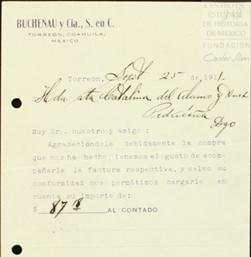 BUCHENAU y Cía., S. en C.
TORREON, COAHUILA,
MEXICO.
CENTRO DE
ESTUDIOS
DE HISTORIA
DE MEXICO
FUNDACIÓN
Torreón, Sept 25 de 191
Hda Sta Catalina del Alamo y
Dgo
Muy Sr. nuestro y amigo:
Agradeciéndole debidamente la compra
que nos ha hecho, tenemos el gusto de acom-
pañarle la factura respectiva, y salvo
su conformidad nos permitimos cargarle en
cuenta su importe de:
$ 87 AL CONTADO